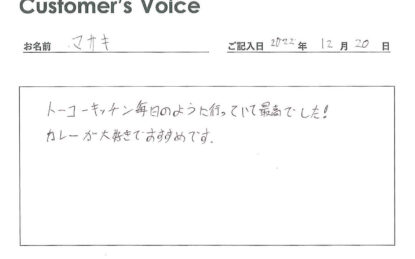 Customer's Voice
お名前 マサキ ご記入日 2022 年 12 月 20 日
トーコーキッチン毎日のように行っていて最高でした!
カレーが大好きでおすすめです.